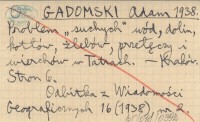 GADOMSKI Adam 1938.
Problem „suchych" wód, dolin,
kotłów, żlebów, przełęczy i
wierchów w Tatrach. — Kraków.
Stron 6.
Odbitka z Wiadomości
Geograficznych 16 (1938) nr 2